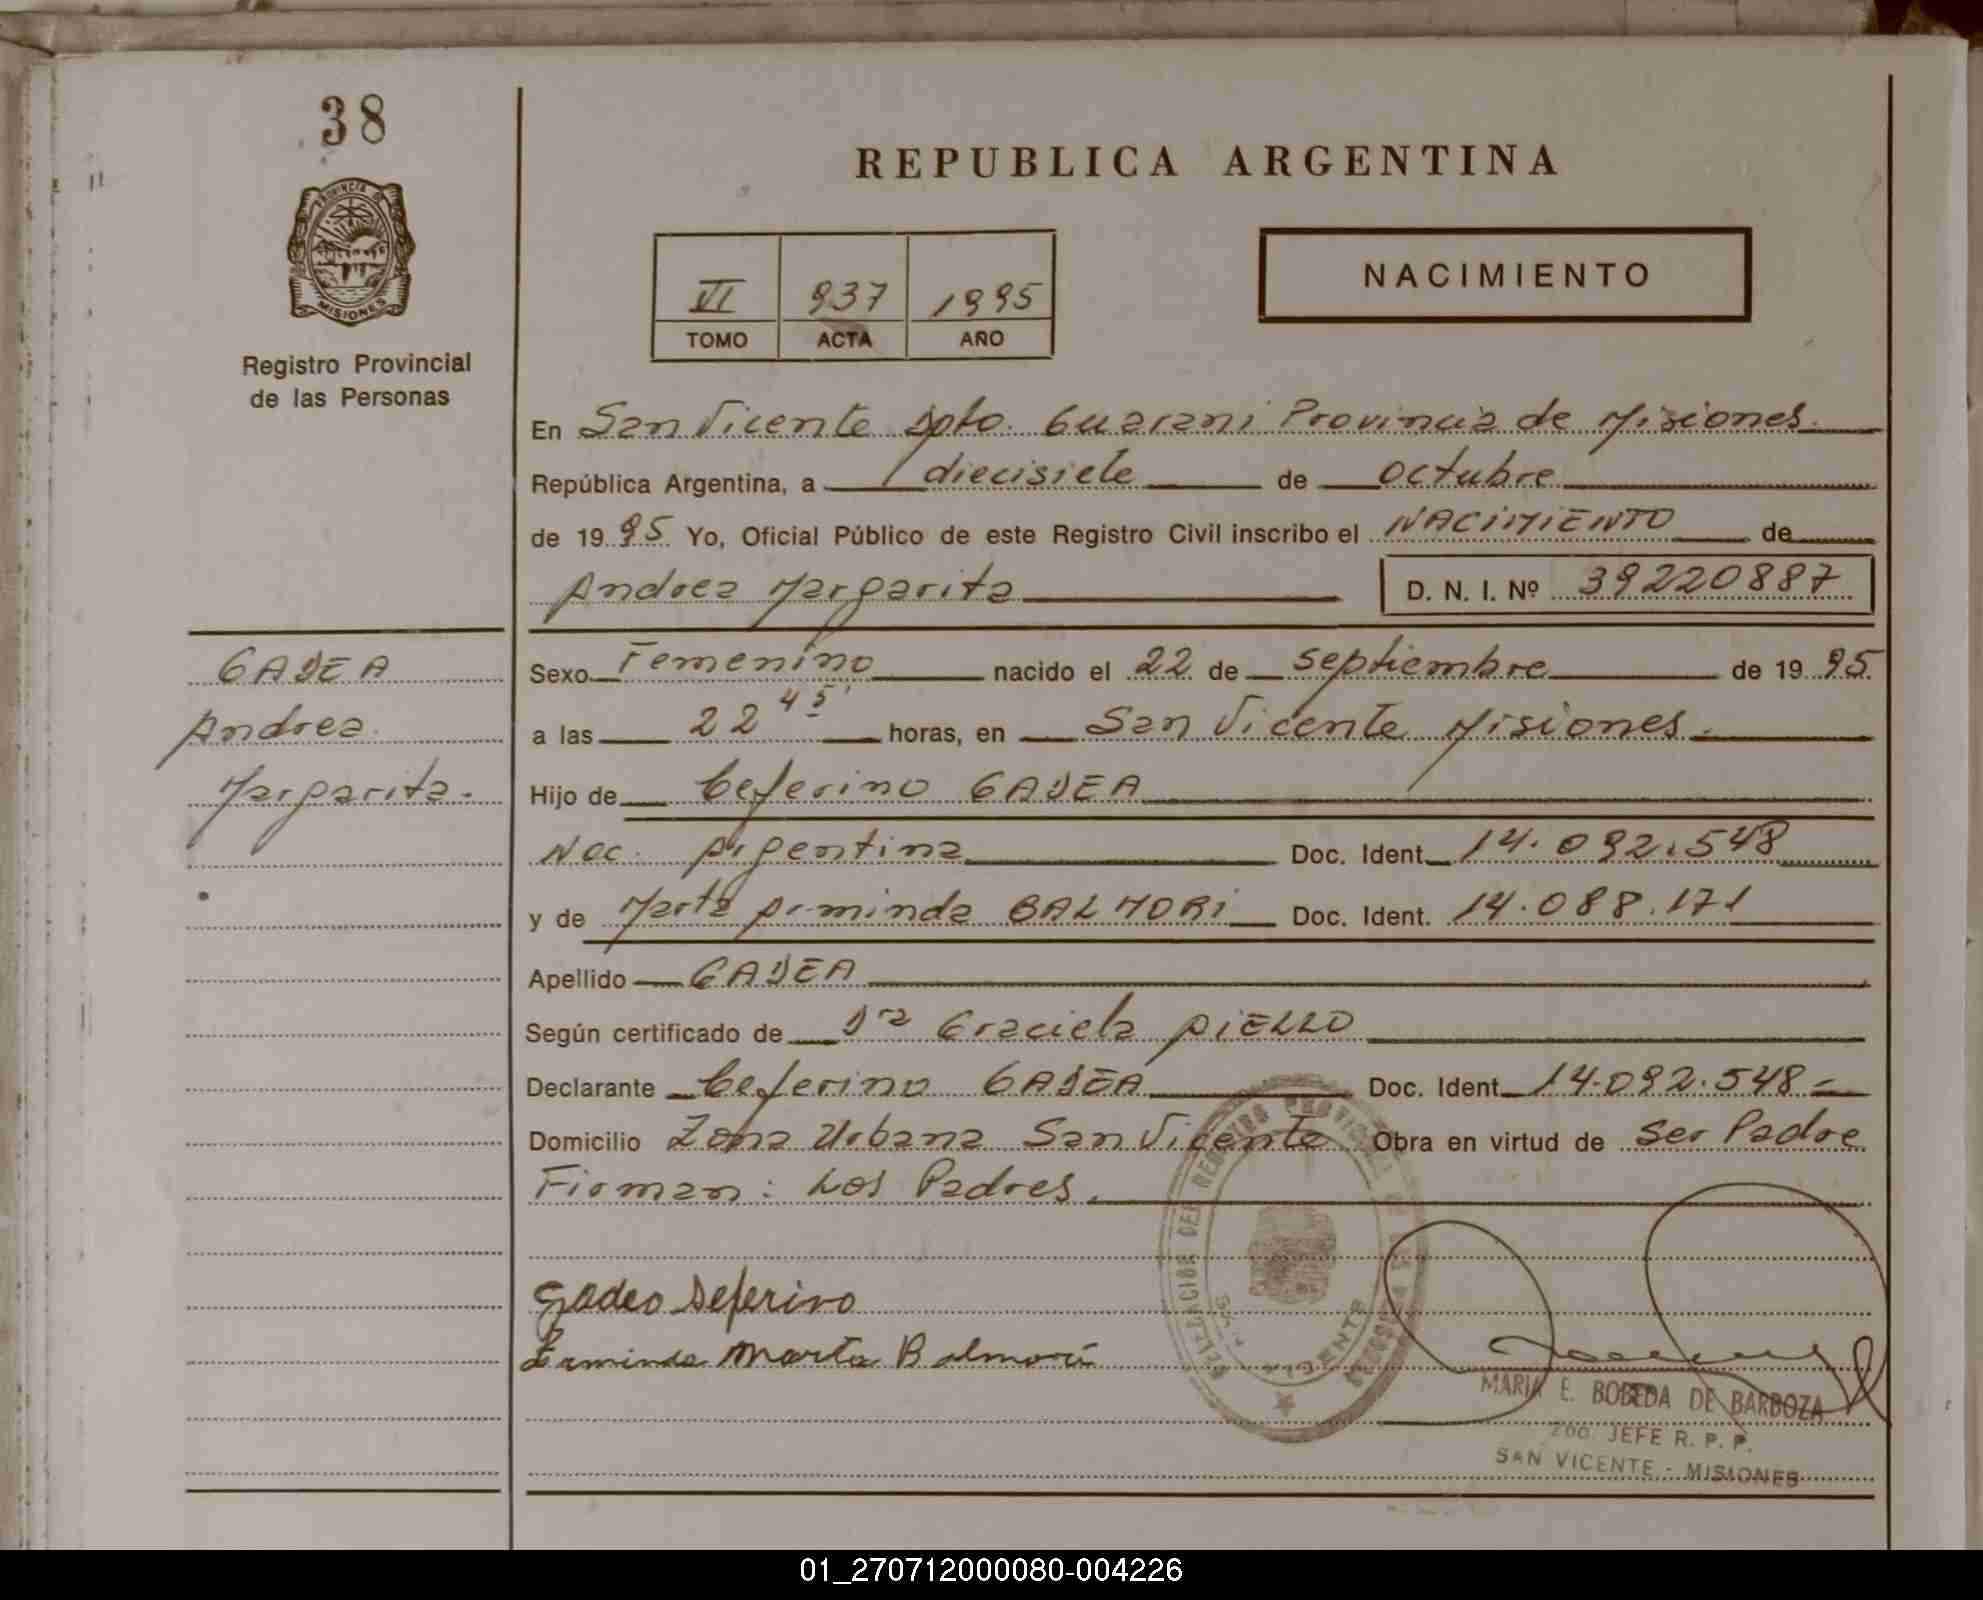 38
REPUBLICA ARGENTINA
PROVINCIA DE
MISIONES
Registro Provincial
de las Personas
VI 937 1995
TOMO ACTA AÑO
NACIMIENTO
En San Vicente Dpto. Guarani Provincia de Misiones.
República Argentina, a diecisiete de octubre
de 1995 Yo, Oficial Público de este Registro Civil inscribo el NACIMIENTO de
Andrea Margarita D. N. I. Nº 39220887
GADEA
Andrea
Margarita.
Sexo Femenino nacido el 22 de septiembre de 1995.
a las 22 45' horas, en San Vicente Misiones.
Hijo de Ceferino GADEA
Nac. Argentina Doc. Ident. 14.092.548
y de Marta Arminda BALMORI Doc. Ident. 14.088.171
Apellido GADEA
Según certificado de Dra Graciela PIELLO
Declarante Ceferino GADEA Doc. Ident. 14.092.548-
Domicilio Zona Urbana San Vicente Obra en virtud de ser Padre
Firman: Los Padres.
Gadeo Seferino
Erminda Marta Balmori
DELEGACION DEL REGISTRO PROVINCIAL DE LAS PERSONAS
VICENTE
MARIA E. BOBEDA DE BARBOZA
2do JEFE R. P. P.
SAN VICENTE - MISIONES
01_270712000080-004226